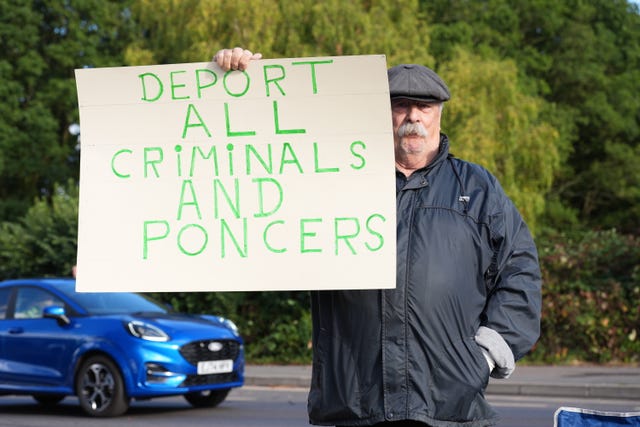 DEPORT
ALL
CRiMiNALS
AND
PONCERS